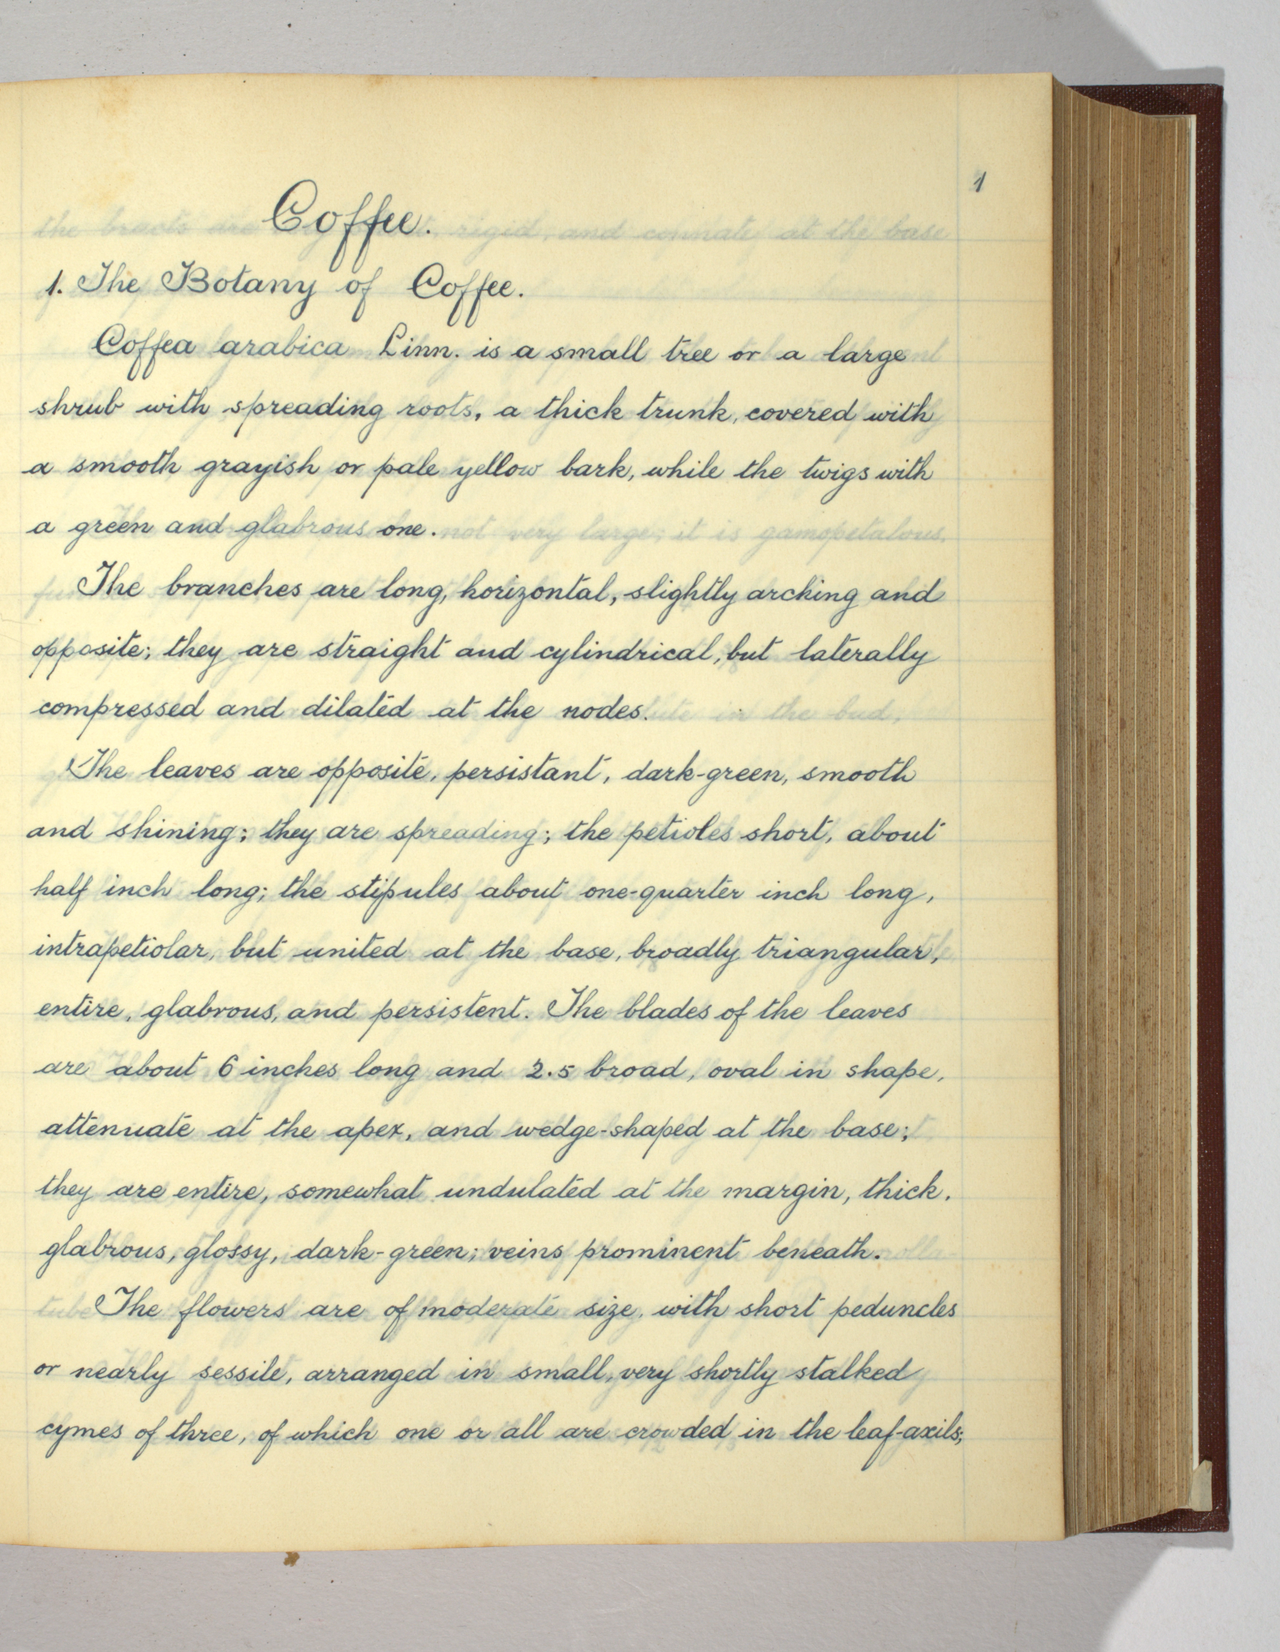 1
Coffee.
1. The Botany of Coffee.
Coffea arabica Linn. is a small tree or a large
shrub with spreading roots, a thick trunk, covered with
a smooth grayish or pale yellow bark, while the twigs with
a green and glabrous one.
The branches are long, horizontal, slightly arching and
opposite; they are straight and cylindrical, but laterally
compressed and dilated at the nodes.
The leaves are opposite, persistant, dark-green, smooth
and shining; they are spreading; the petioles short, about
half inch long; the stipules about one-quarter inch long,
intrapetiolar, but united at the base, broadly triangular,
entire, glabrous, and persistent. The blades of the leaves
are about 6 inches long and 2.5 broad, oval in shape,
attenuate at the apex, and wedge-shaped at the base;
they are entire, somewhat undulated at the margin, thick,
glabrous, glossy, dark-green; veins prominent beneath.
The flowers are of moderate size, with short peduncles
or nearly sessile, arranged in small, very shortly stalked
cymes of three, of which one or all are crowded in the leaf-axils;